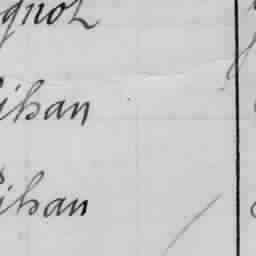 gnot
ihan
ihan